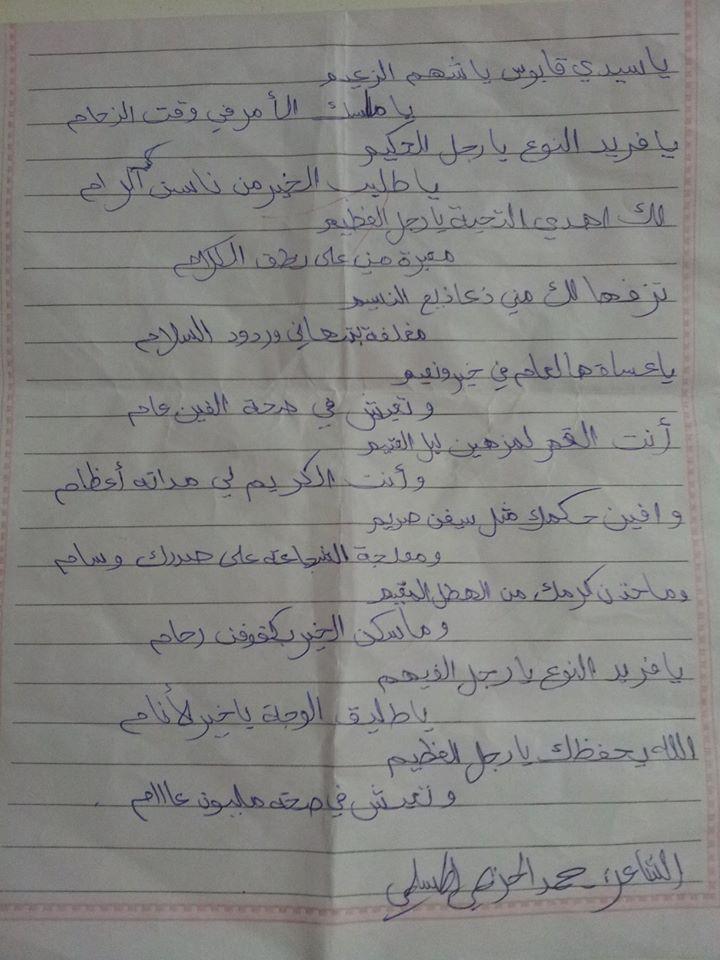 ياسيدي قابوس ياشهم الزعيم
يا ماسك الأمر في وقت الزحام
يا فريد النوع يا رجل الحكيم
يا طليب الخير من ناسن كرام
لك اهدي التحية يا رجل العظيم
معبرة مني على نطق الكلام
تزفها لك مني ذعاذيع النسيم
مغلفة بتهاني وردود السلام
يا عساة هالعام في خير ونعيم
وتعيش في صحة الفين عام
أنت القمر لمزهين ليل العتيم
وأنت الكريم لي مداته أعظام
وافين حكمك مثل سيفن صريم
ومدلجة الشجاعة على صدرك وسام
وماخذن كرمك من الهطل المقيم
وماسكن الخير بكفوفن رحام
يا فريد النوع يا رجل الفهيم
يا طليق الوجة يا خير لأنام
الله يحفظك يا رجل العظيم
وتعيش في صحة مليون عااام
الشاعر